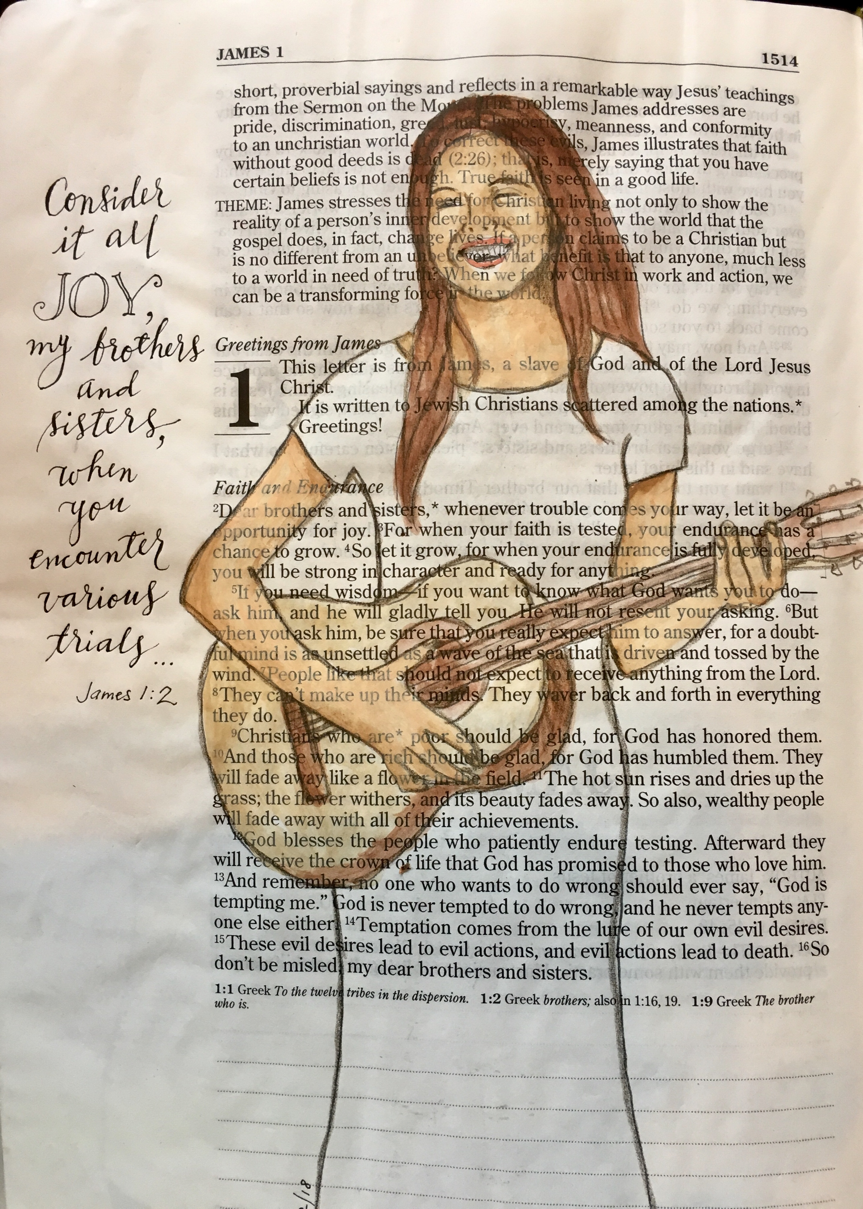 JAMES 1
1514
short, proverbial sayings and reflects in a remarkable way Jesus' teachings
from the Sermon on the Mount. The problems James addresses are
pride, discrimination, greed, lust, hypocrisy, meanness, and conformity
to an unchristian world. To correct these evils, James illustrates that faith
without good deeds is dead (2:26); that is, merely saying that you have
certain beliefs is not enough. True faith is seen in a good life.
THEME: James stresses the need for Christian living not only to show the
reality of a person's inner development but to show the world that the
gospel does, in fact, change lives. If a person claims to be a Christian but
is no different from an unbeliever, what benefit is that to anyone, much less
to a world in need of truth? When we follow Christ in work and action, we
can be a transforming force in the world.
Consider
it all
JOY,
my brothers
and
sisters,
when
you
encounter
various
trials...
James 1:2
Greetings from James
1 This letter is from James, a slave of God and of the Lord Jesus
Christ.
It is written to Jewish Christians scattered among the nations.*
Greetings!
Faith and Endurance
²Dear brothers and sisters,* whenever trouble comes your way, let it be an
opportunity for joy. ³For when your faith is tested, your endurance has a
chance to grow. ⁴So let it grow, for when your endurance is fully developed,
you will be strong in character and ready for anything.
⁵If you need wisdom—if you want to know what God wants you to do—
ask him, and he will gladly tell you. He will not resent your asking. ⁶But
when you ask him, be sure that you really expect him to answer, for a doubt-
ful mind is as unsettled as a wave of the sea that is driven and tossed by the
wind. ⁷People like that should not expect to receive anything from the Lord.
⁸They can't make up their minds. They waver back and forth in everything
they do.
⁹Christians who are* poor should be glad, for God has honored them.
¹⁰And those who are rich should be glad, for God has humbled them. They
will fade away like a flower in the field. ¹¹The hot sun rises and dries up the
grass; the flower withers, and its beauty fades away. So also, wealthy people
will fade away with all of their achievements.
¹²God blesses the people who patiently endure testing. Afterward they
will receive the crown of life that God has promised to those who love him.
¹³And remember, no one who wants to do wrong should ever say, “God is
tempting me.” God is never tempted to do wrong, and he never tempts any-
one else either. ¹⁴Temptation comes from the lure of our own evil desires.
¹⁵These evil desires lead to evil actions, and evil actions lead to death. ¹⁶So
don't be misled, my dear brothers and sisters.
1:1 Greek To the twelve tribes in the dispersion. 1:2 Greek brothers; also in 1:16, 19. 1:9 Greek The brother
who is.